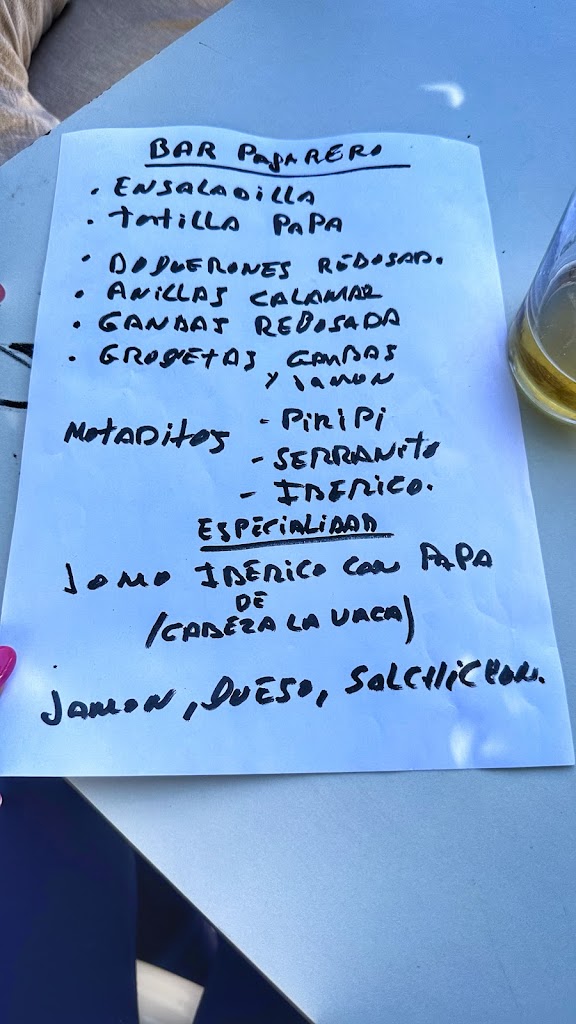 BAR PAJARERO
. ENSALADILLA
. TORTILLA PAPA
. BOQUERONES REBOSAD.
. ANILLAS CALAMAR
. GANBAS REBOSADA
. CROQETAS GAMBAS
Y JAMON
MOTADITOS - PIRIPI
- SERRANITO
- IBERICO.
ESPECIALIDAD
LOMO IBERICO CON PAPA
DE
(CABEZA LA VACA)
JAMON, QUESO, SALCHICHON.